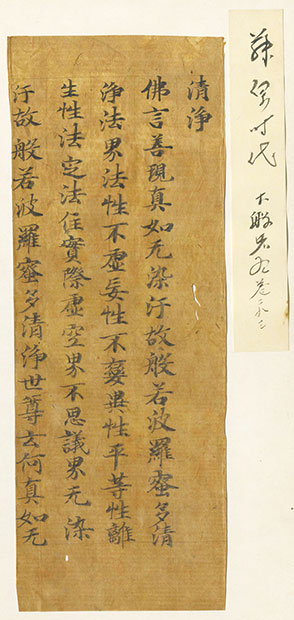 藤原时代 大般若巻二九二
清浄
佛言善現真如无染汙故般若波羅蜜多清
浄法界法性不虚妄性不變異性平等性離
生性法定法住實際虚空界不思議界无染
汙故般若波羅蜜多清浄世尊云何真如无